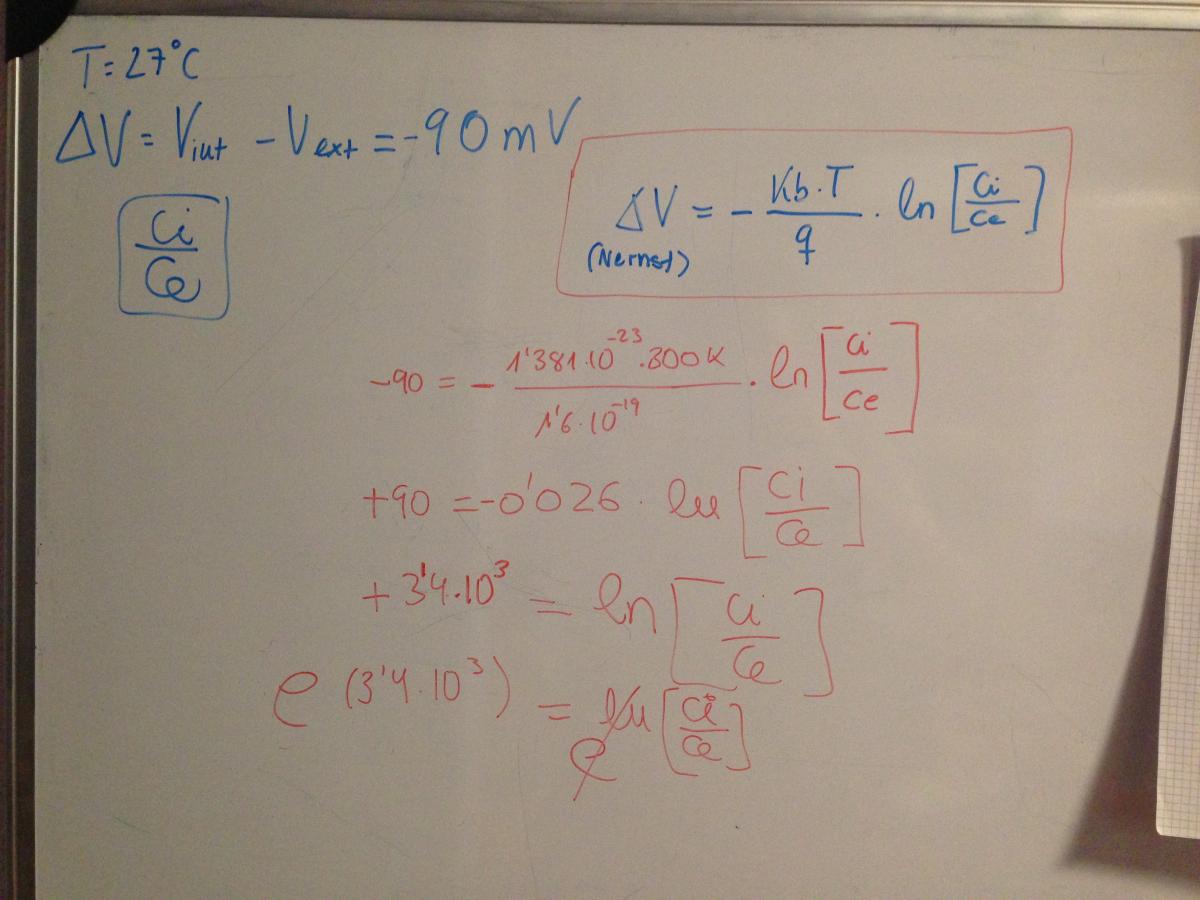 T=27°C
ΔV = Vint - Vext = -90mV
Ci/Ce
ΔV = - Kb·T/q · ln [Ci/Ce]
(Nernst)
-90 = - 1'381·10^-23·300K/1'6·10^-19 · ln [Ci/Ce]
+90 = -0'026 · ln [Ci/Ce]
+ 3'4·10^3 = ln [Ci/Ce]
e (3'4·10^3) = e ln [Ci/Ce]